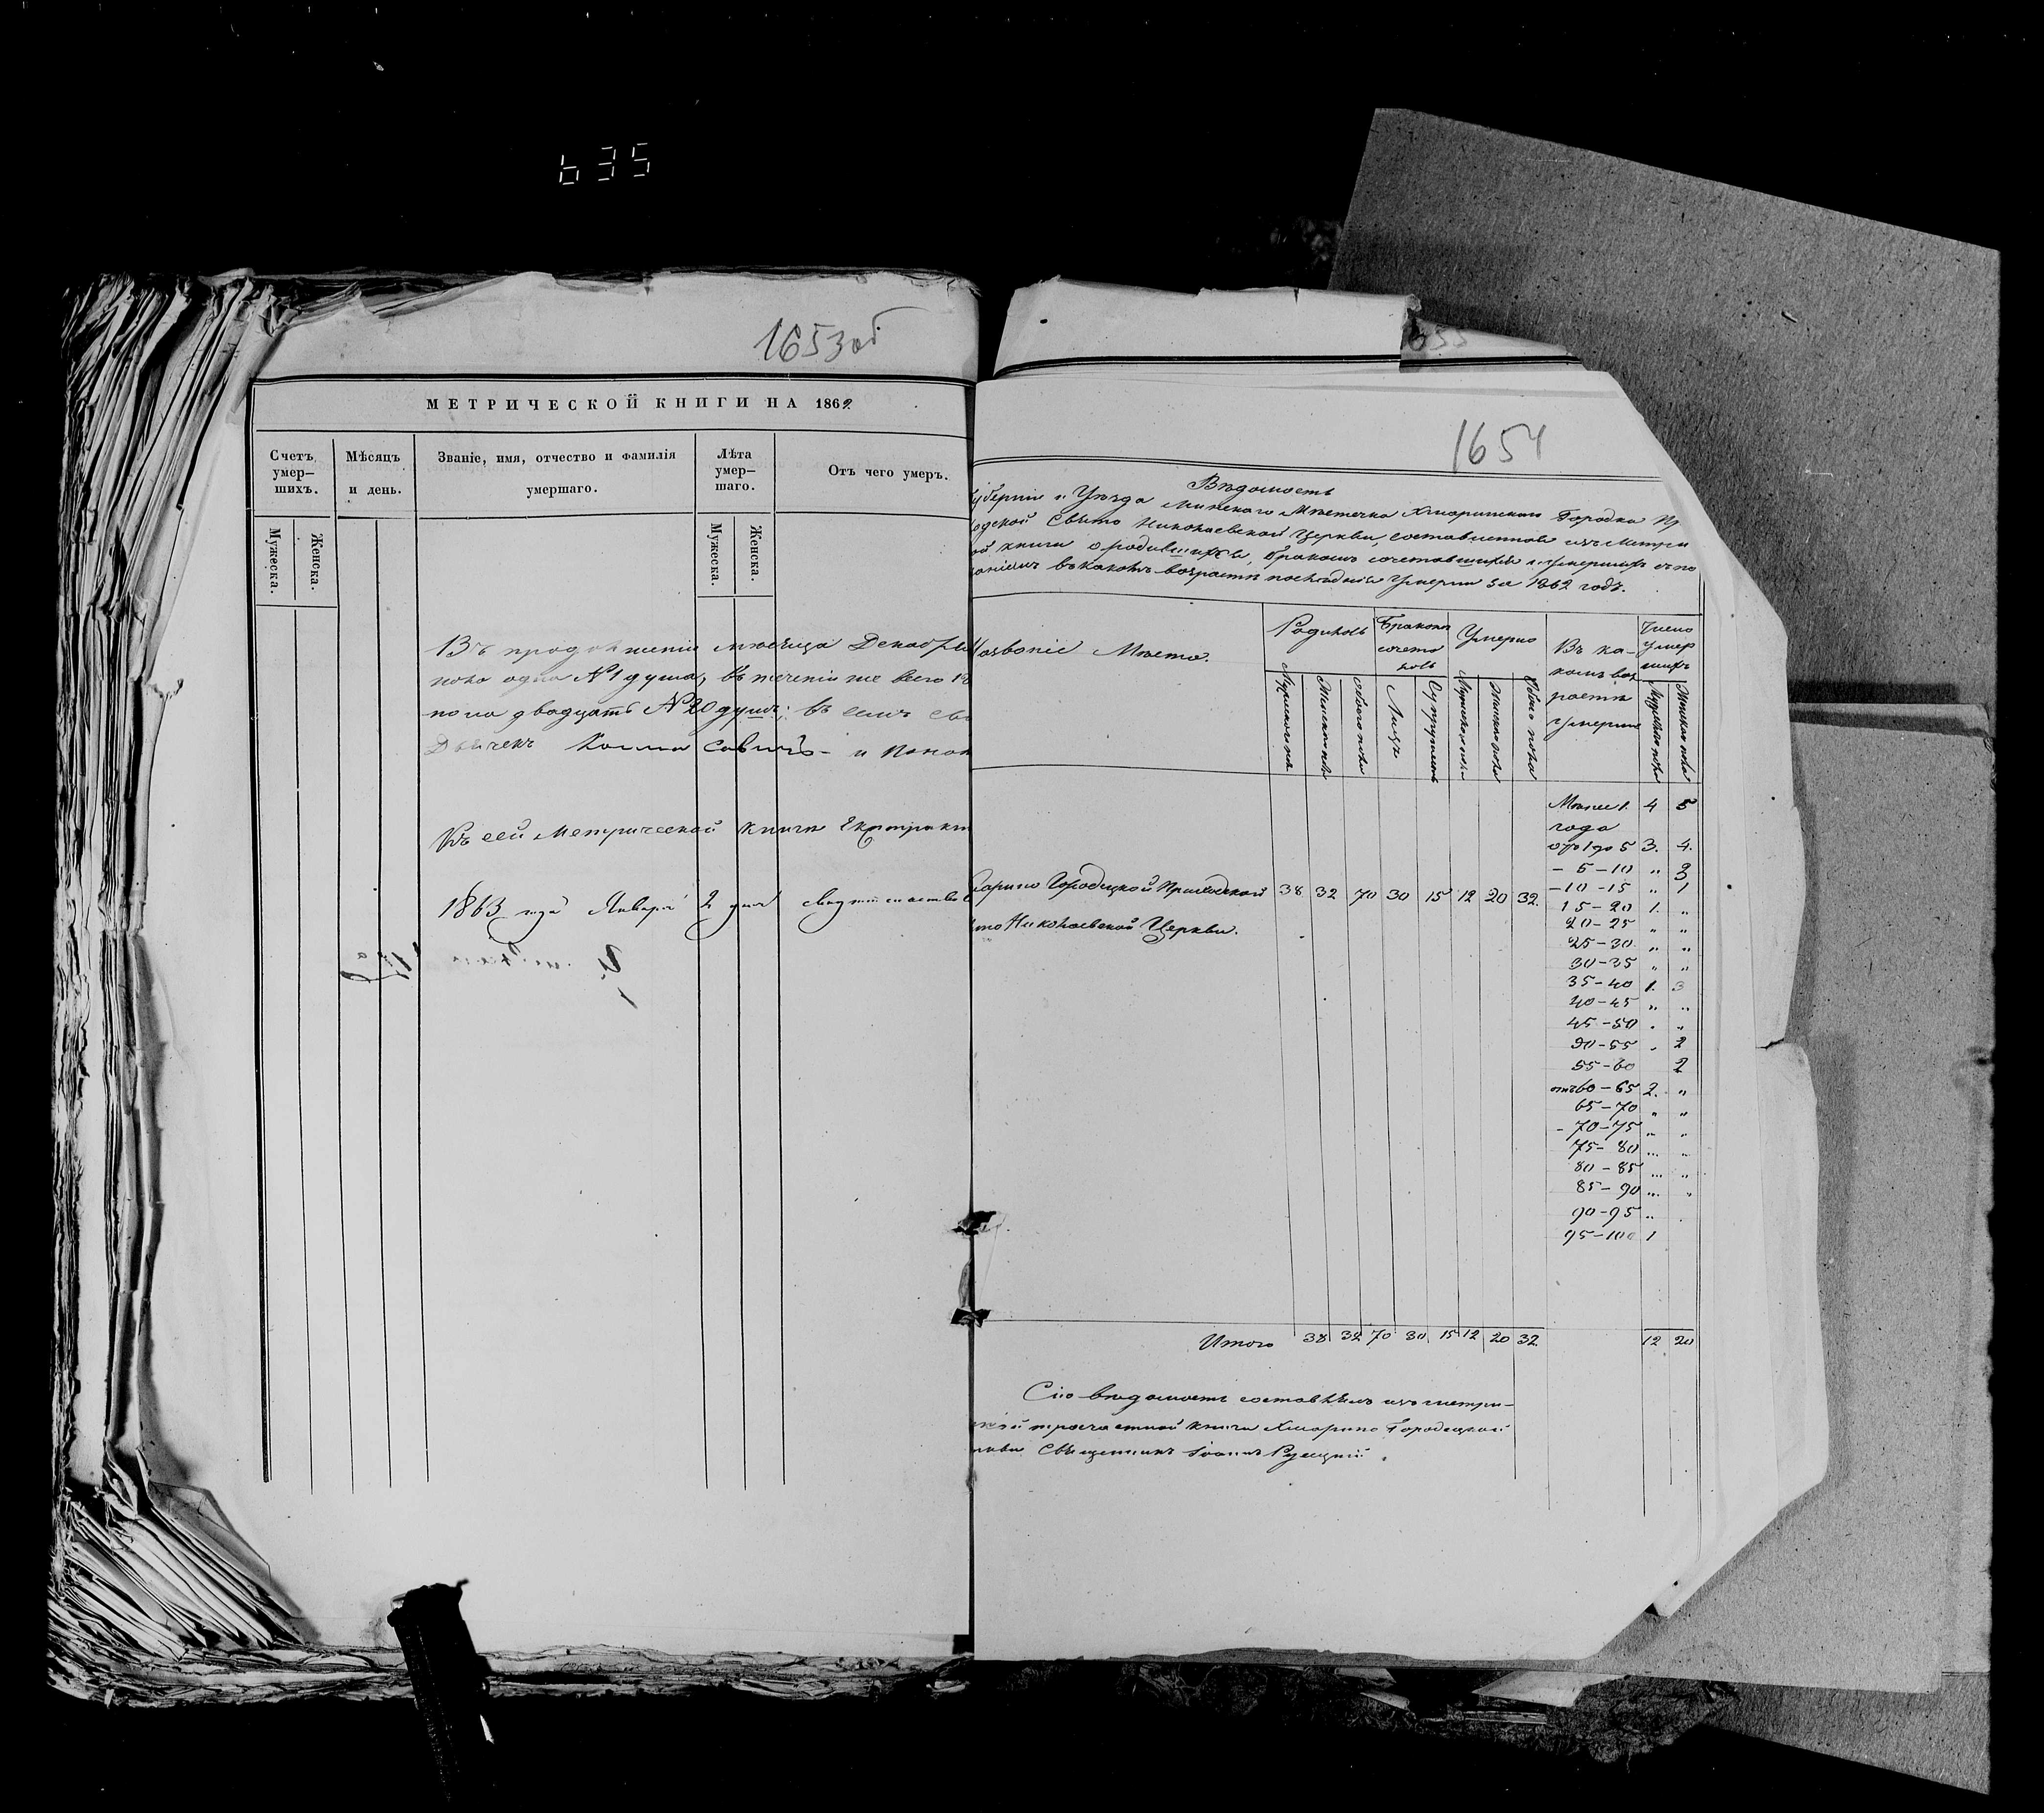 635
1653об
МЕТРИЧЕСКОЙ КНИГИ НА 1862
Счетъ умер–шихъ.
Мѣсяцъ и день.
Званіе, имя, отчество и фамилія умершаго.
Лѣта умер–шаго.
Отъ чего умеръ.
Мужеска.
Женска.
Мужеска.
Женска.
Въ продолженіи мѣсяца Декабря
пола одна №1 душа, въ теченіи же всего
пола двадцать №20 душъ; въ семъ
Дьячекъ
Къ сей Метрической книги Екстракт
1863 года Января 2 дня
1654
Вѣдомость
Губерніи и Уѣзда Минскаго Мѣстечка Хмаринскаго Городка
Свято Николаевской Церкви, составленная изъ метри
книги о родившихся, бракомъ сочетавшихся и умершихъ
въ какомъ возрастѣ послѣдніе умерли за 1862 годъ.
Названіе Мѣста.
Родилось
Бракомъ сочета лось
Умерло
Въ ка–комъ воз растѣ умерли
Число умер шихъ
Мужеска пола
Женска пола
Обоего пола
Лицъ
Супружествъ
Мужеска пола
Женска пола
Обоего пола
Мужеска пола
Женска пола
Менѣе 1. 4 5
года
отъ 1 до 5 3. 4.
– 5–10 „ 3
–10–15 „ 1
Хмарино Городецкой Приходской 38 32 70 30 15 12 20 32.
15–20 1. „
Свято Николаевской Церкви.
20–25 „ „
25–30 „ „
30–35 „ „
35–40 1. 3
40–45 „ „
45–50 „ „
50–55 „ 2
55–60 2
отъ 60–65 2. „
65–70 „ „
–70–75 „ „
75–80 „ „
80–85 „ „
85–90 „ „
90–95 „
95–100 1
Итого 38 32 70 30 15 12 20 32. 12 20
Сію вѣдомость составлялъ изъ метри–
приходской книги Хмарино Городецкой
Священникъ Іоаннъ Руецкій.